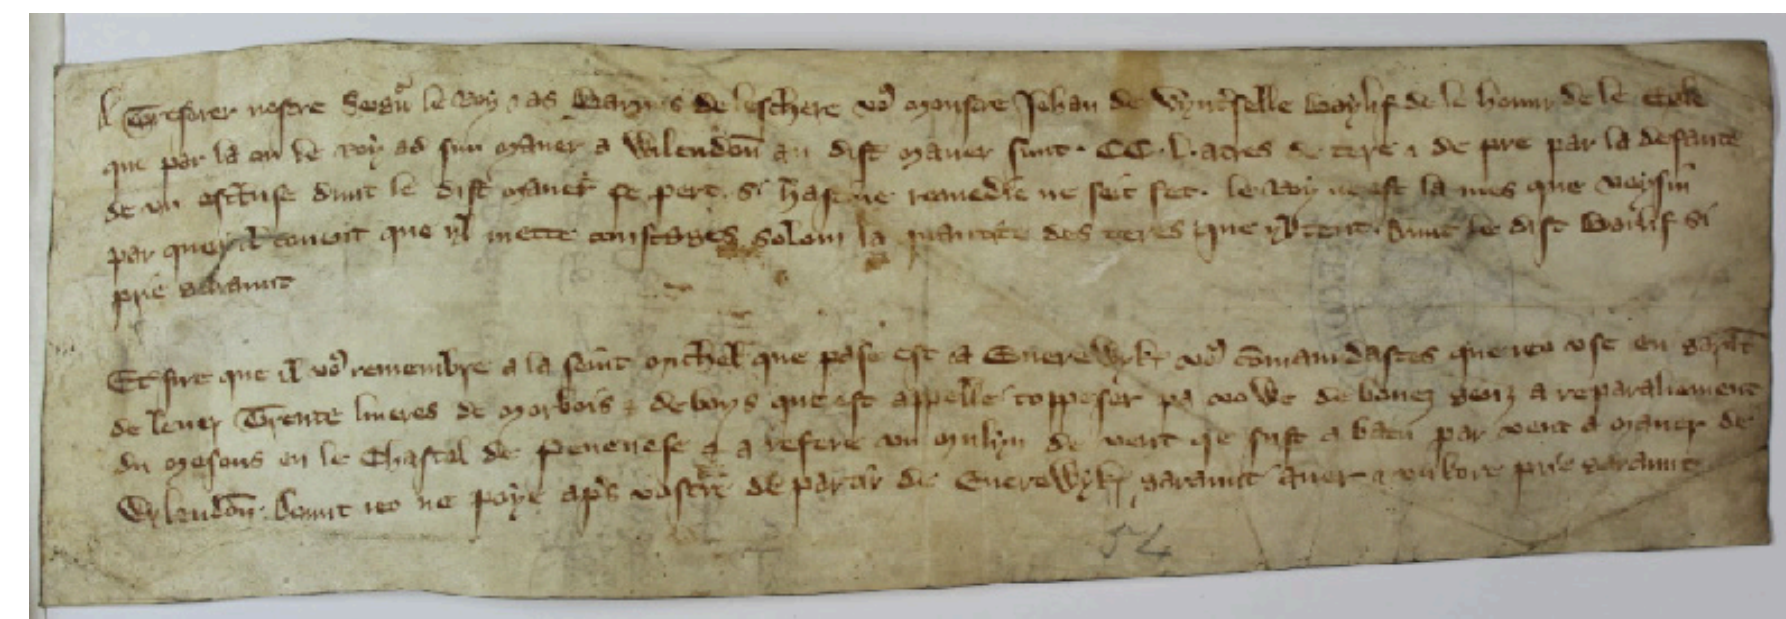 A Tresorer nostre Seygnr le Roy ⁊ as Baruns de lescheḱere vo9 monstre Johan de Wyncħselle Baylif de le honur de le Egle
que par la ou le roy ad sun maner a Wilendon̄ au dist maner sunt · CC · L · acres de tere ⁊ de pre par la defaute
de un escluse dunt le dist maner se pert · si hastive remedie ne seit fet · le Roy ne est la mes que veysin
par quey il covent que yl mette coustages solom la quantite des teres que yl tent · Dunt le dist Bailif si
prie Garaunt
Et sire que il vo9 remembre a la seint Michel que pase est a Euerewyk vo9 comaundastes que ieo use en garāt
de lever Trente liveres de Morbois ⁊ de boys que est appelle coppeser pa vowe de bones genz a reparaliement
du mesons en le Chastel de Pevenese ⁊ a refere un mulyn de vent qe fust abatu par vent a maner de
Wylendon̄ · Dount ieo ne poye ap's vostre departir de Euerewyk garaunt aver ⁊ unkore prie garaunt
52